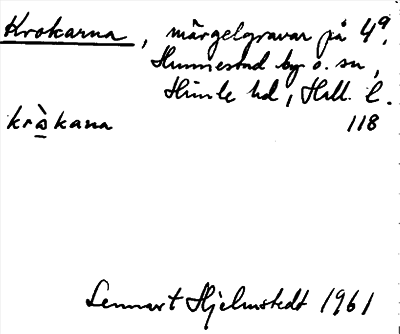 Krokarna, märgelgravar på 4ª,
Hunnestad by o. sn,
Himle hd, Hall. l.
krὰkana 118
Lennart Hjelmstedt 1961